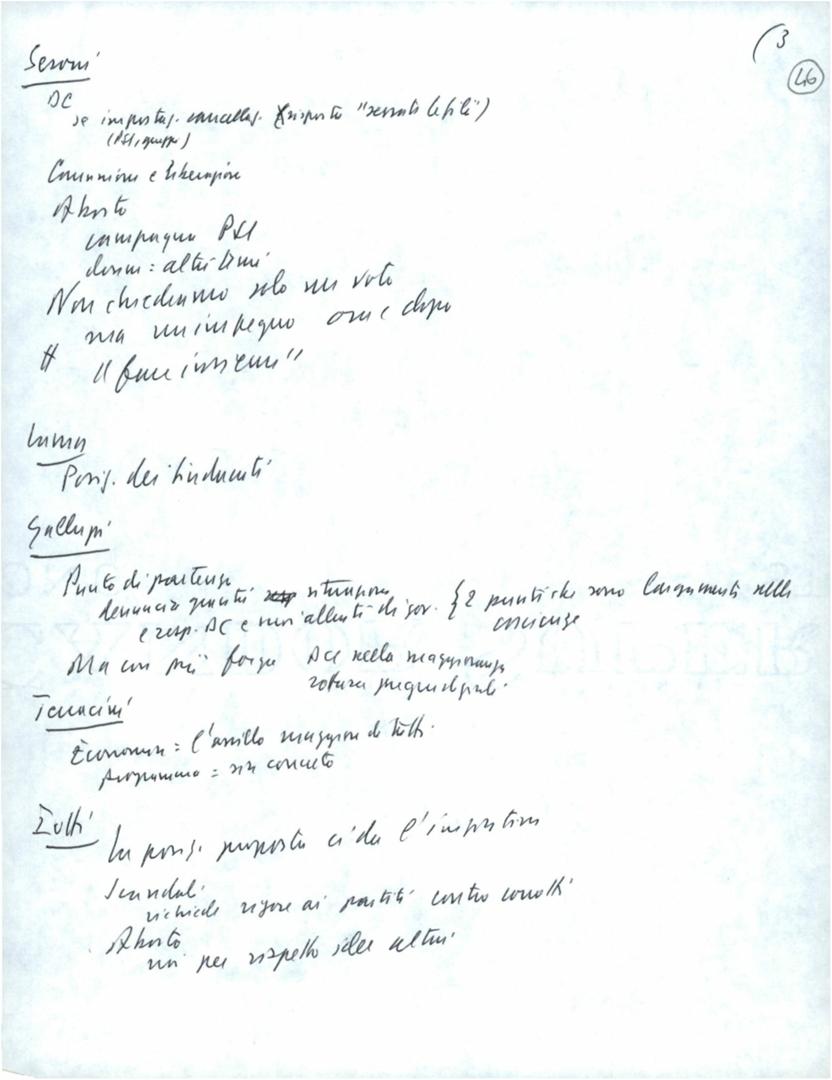 (3
46
Seroni
DC
se impostaz. cancellaz. (risposta "serrate le file")
(PSI, gruppi)
Comunione e liberazione
Aborto
campagna PSI
donne = altri temi
Non chiediamo solo un voto
ma un impegno ora e dopo
# Il fare insieme"
Lama
Posiz. dei sindacati
Galluzzi
Punto di partenza
denuncia gravità situazione
e resp. DC e suoi alleati di gov. { 2 punti che sono largamente nelle
coscienze
Ma con più forza DC nella maggioranza
rottura pregiudiziali
Terracini
Economia = l'assillo maggiore di tutti
programma = sia concreto
Iotti
La posiz. proposta ci dà l'iniziativa
Scandali
richiede rigore ai partiti contro corrotti
Aborto
noi per rispetto idee altrui